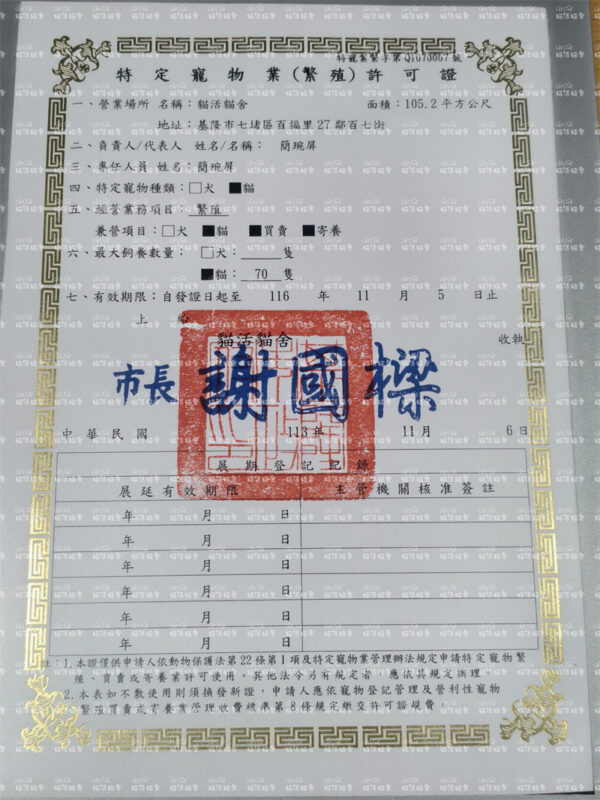 特寵業繁字第Q1G70007號
特定寵物業(繁殖)許可證
一、營業場所 名稱：貓活貓舍 面積：105.2平方公尺
地址：基隆市七堵區百福里27鄰百七街
二、負責人/代表人 姓名/名稱： 簡琬屏
三、專任人員 姓名：簡琬屏
四、特定寵物種類：□犬 ■貓
五、經營業務項目： 繁殖
兼營項目：□犬 ■貓 ■買賣 ■寄養
六、最大飼養數量： □犬：______隻
■貓： 70 隻
七、有效期限：自發證日起至 116 年 11 月 5 日止
上 給
貓活貓舍 收執
市長 謝國樑
中華民國 113年 11月 6日
展期登記記錄
展延有效期限 主管機關核准簽註
年 月 日
年 月 日
年 月 日
年 月 日
年 月 日
年 月 日
註：1.本證僅供申請人依動物保護法第22條第1項及特定寵物業管理辦法規定申請特定寵物繁
殖、買賣或寄養業許可使用，其他法令另有規定者，應依其規定辦理。
2.本表如不敷使用則須換發新證，申請人應依寵物登記管理及營利性寵物
繁殖買賣或寄養業管理收費標準第8條規定繳交許可證規費。